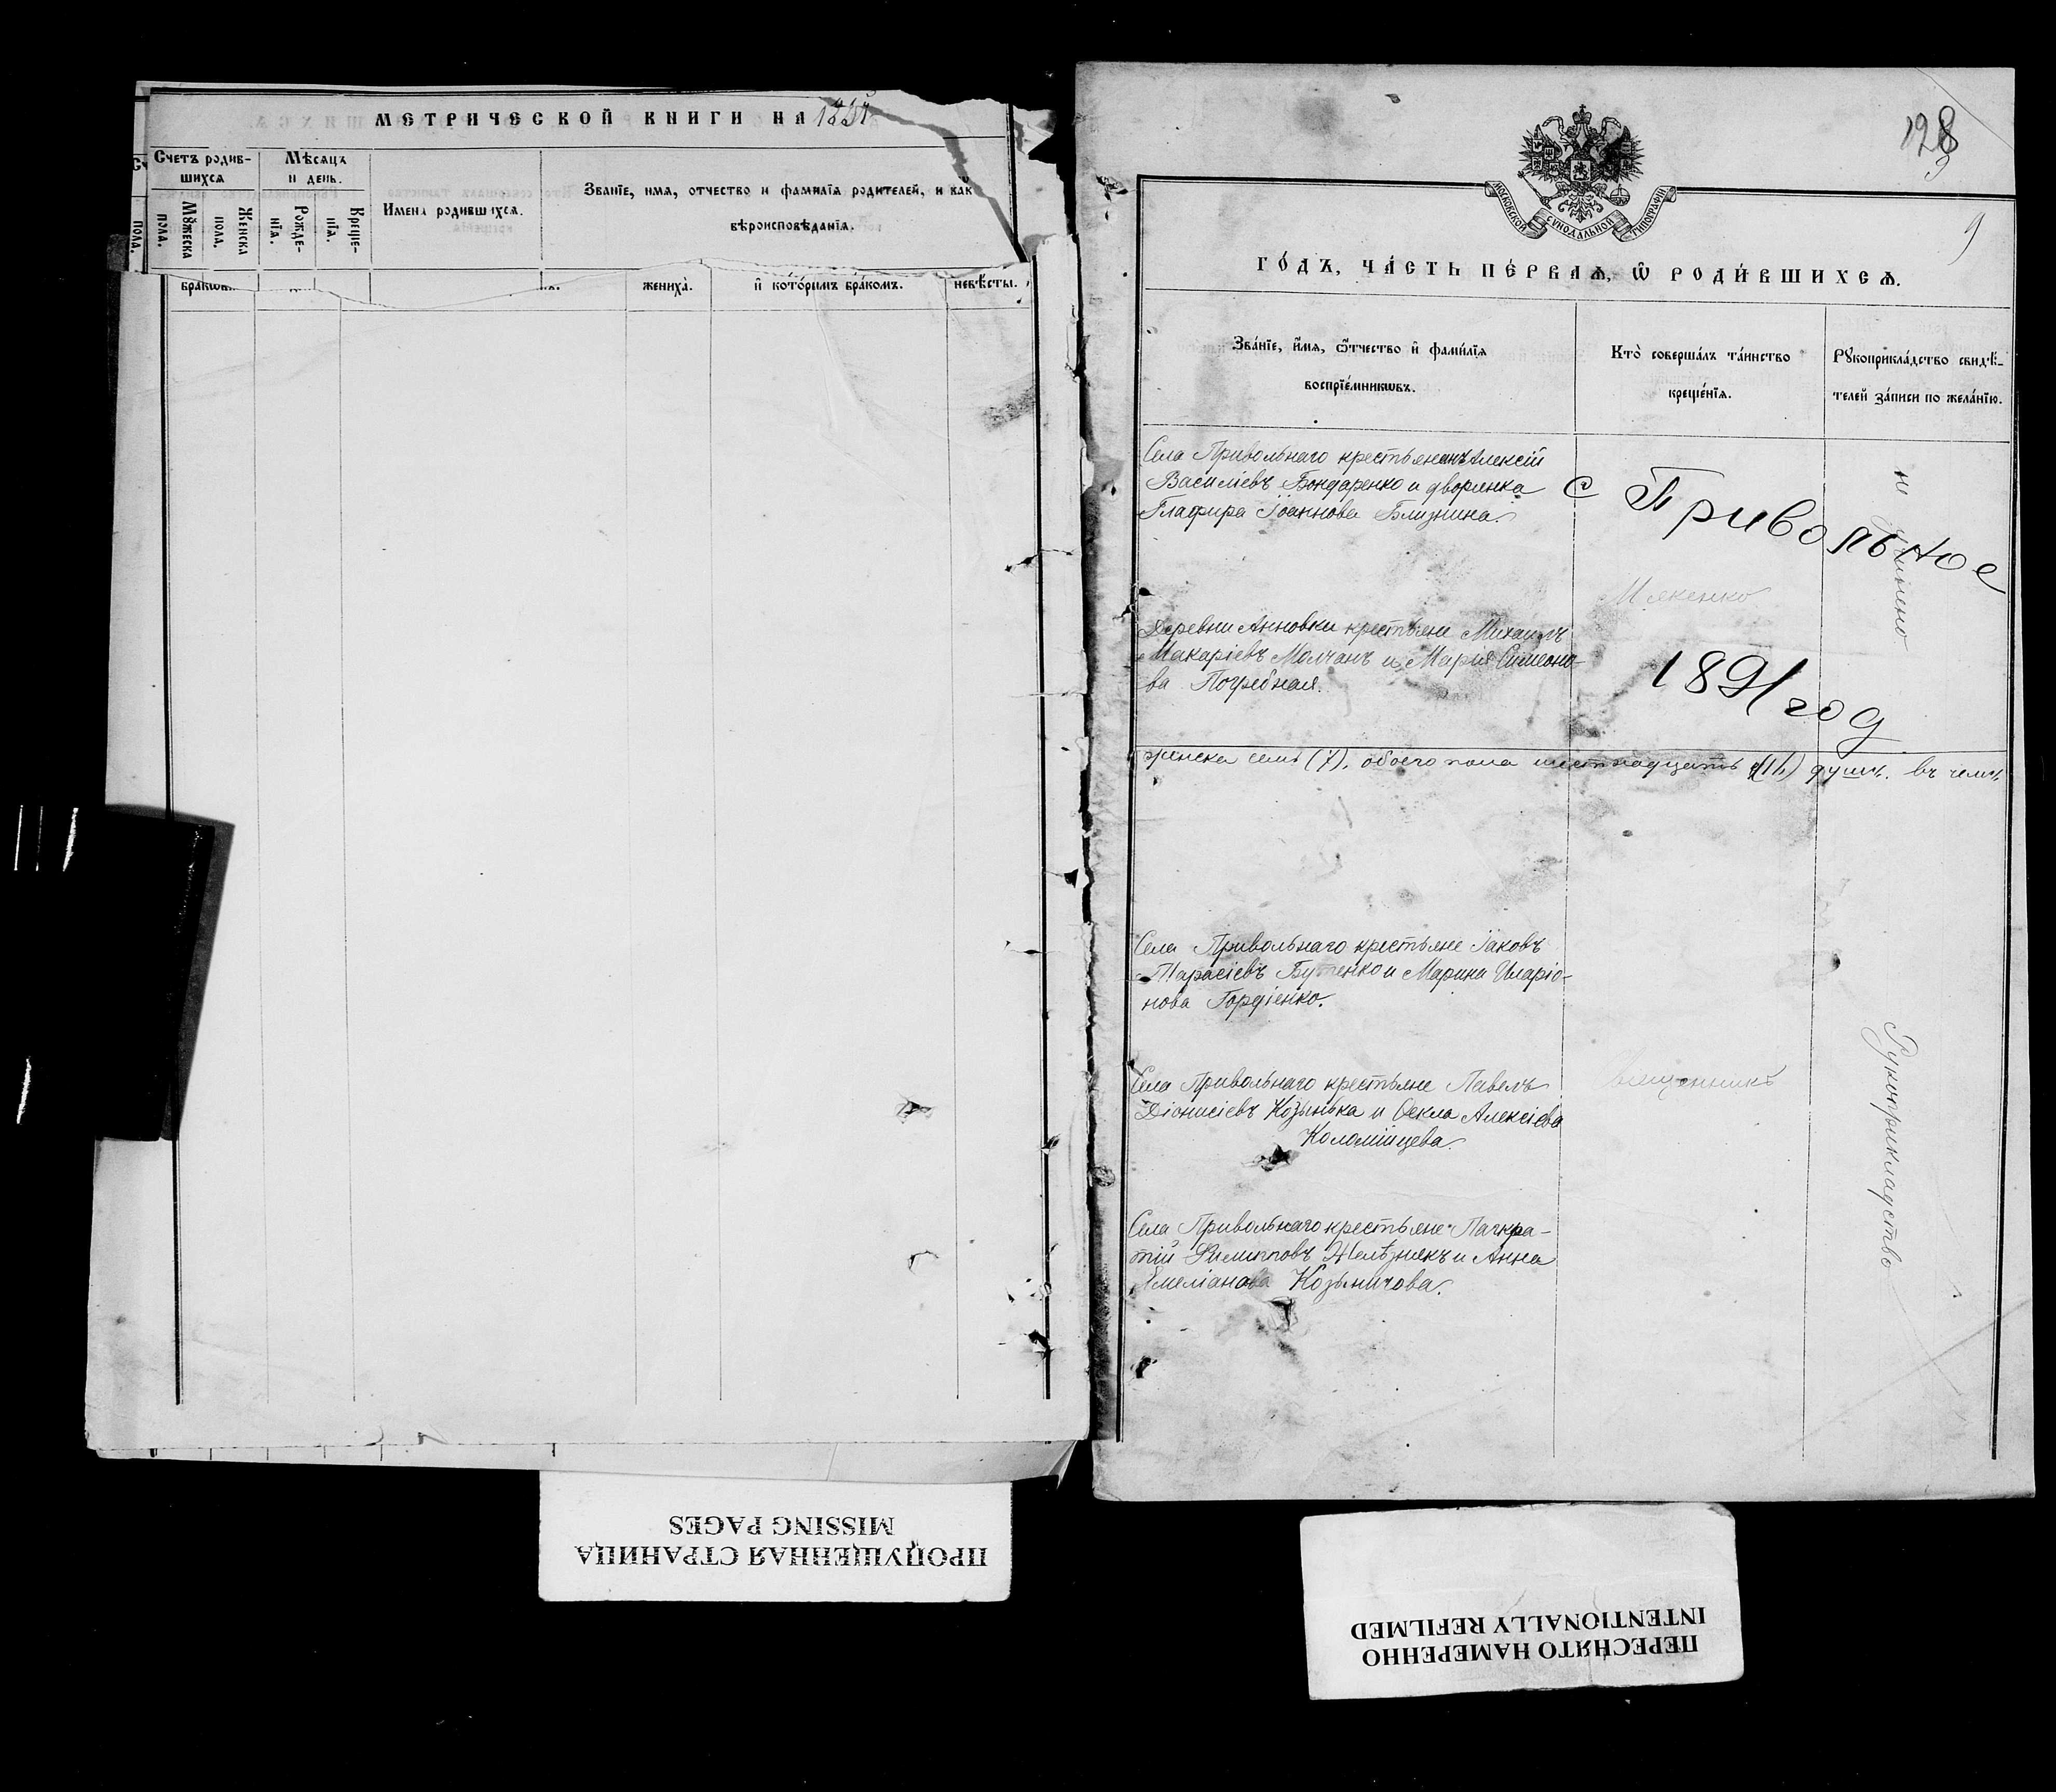 МЕТРИЧЕСКОЙ КНИГИ НА
Счетъ родив-
шихся
Мѣсяцъ
и день.
Имена родившихся.
Званіе, имя, отчество и фамилія родителей, и как
вѣроисповѣданія.
Мꙋжеска
пола.
Женска
пола.
Рожде-
нія.
Креще-
нія.
пола.
жениха̀.
и҆ кото́рымъ бра́комъ.
невѣ́сты.
128
9
МОСКОВСКОЙ СѴНОДАЛЬНОЙ ТИПОГРАФІИ
ГО́ДЪ, ЧА́СТЬ ПЕ́РВАѦ, Ѡ҆ РОДИ́ВШИХСѦ.
Зва́нїе, и҆́мя, ѻ҆́тчество и҆ фами́лїя
воспрїе́мникѡвъ.
Кто̀ соверша́лъ та́инство
креще́нїя.
Рꙋкоприкла́дство свидѣ́-
телей за́писи по жела́нїю.
Села Привольнаго крестьянинъ Алексій
Василіевъ Бондаренко и дворянка
Глафира Іоаннова Близнина.
с Привольное
Деревни Анновки крестьяне Михаилъ
Макаріевъ Молчанъ и Марія Симеоно-
ва Погребная.
1891 год
женска семь (7), обоего пола шестнадцать (16) душъ. въ чемъ
Села Привольнаго крестьяне Іаковъ
Тарасіевъ Бутенко и Марина Иларіо-
нова Гордіенко.
Села Привольнаго крестьяне Павелъ
Діонисіевъ Козынька и Ѳекла Алексіева
Коломійцева.
Священникъ
Села Привольнаго крестьяне Панкра-
тій Филипповъ Желѣзнякъ и Анна
Емеліанова Козыничова.
Рукоприкладство
ПРОПУЩЕННАЯ СТРАНИЦА
MISSING PAGES
ПЕРЕСНЯТО НАМЕРЕННО
INTENTIONALLY REFILMED